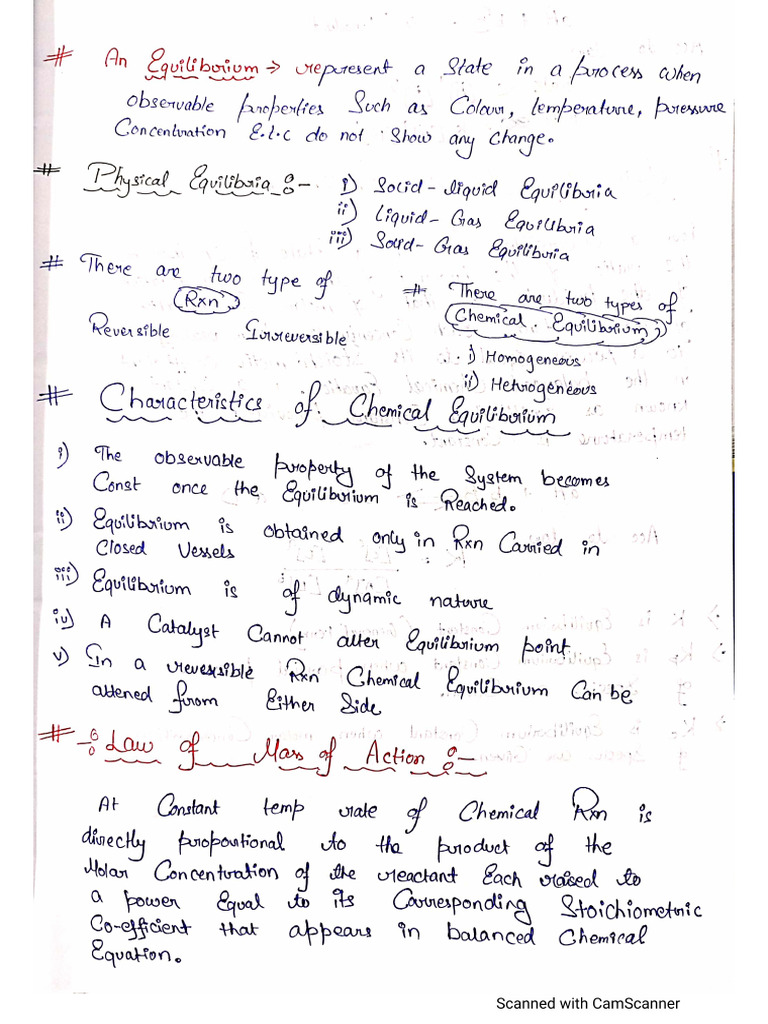 # An Equilibrium → represent a State in a process when
observable properties Such as Colour, temperature, pressure
Concentration E.t.c do not Show any change.
# Physical Equilibria :- i) Solid-liquid Equilibria
ii) Liquid-Gas Equilibria
iii) Solid-Gas Equilibria
# There are two type of
Rxn
Reversible Irreversible
# There are two types of
Chemical Equilibrium
i) Homogeneous
ii) Hetrogeneous
# Characteristics of Chemical Equilibrium
i) The observable property of the System becomes
Const once the Equilibrium is Reached.
ii) Equilibrium is obtained only in Rxn Carried in
Closed Vessels
iii) Equilibrium is of dynamic nature
iv) A Catalyst Cannot alter Equilibrium point.
v) In a reversible Rxn Chemical Equilibrium Can be
attened from Either Side
# -: Law of Mass of Action :-
At Constant temp rate of Chemical Rxn is
directly propotional to the product of the
Molar Concentration of the reactant Each raised to
a power Equal to its Corresponding Stoichiometric
Co-efficient that appears in balanced Chemical
Equation.
Scanned with CamScanner